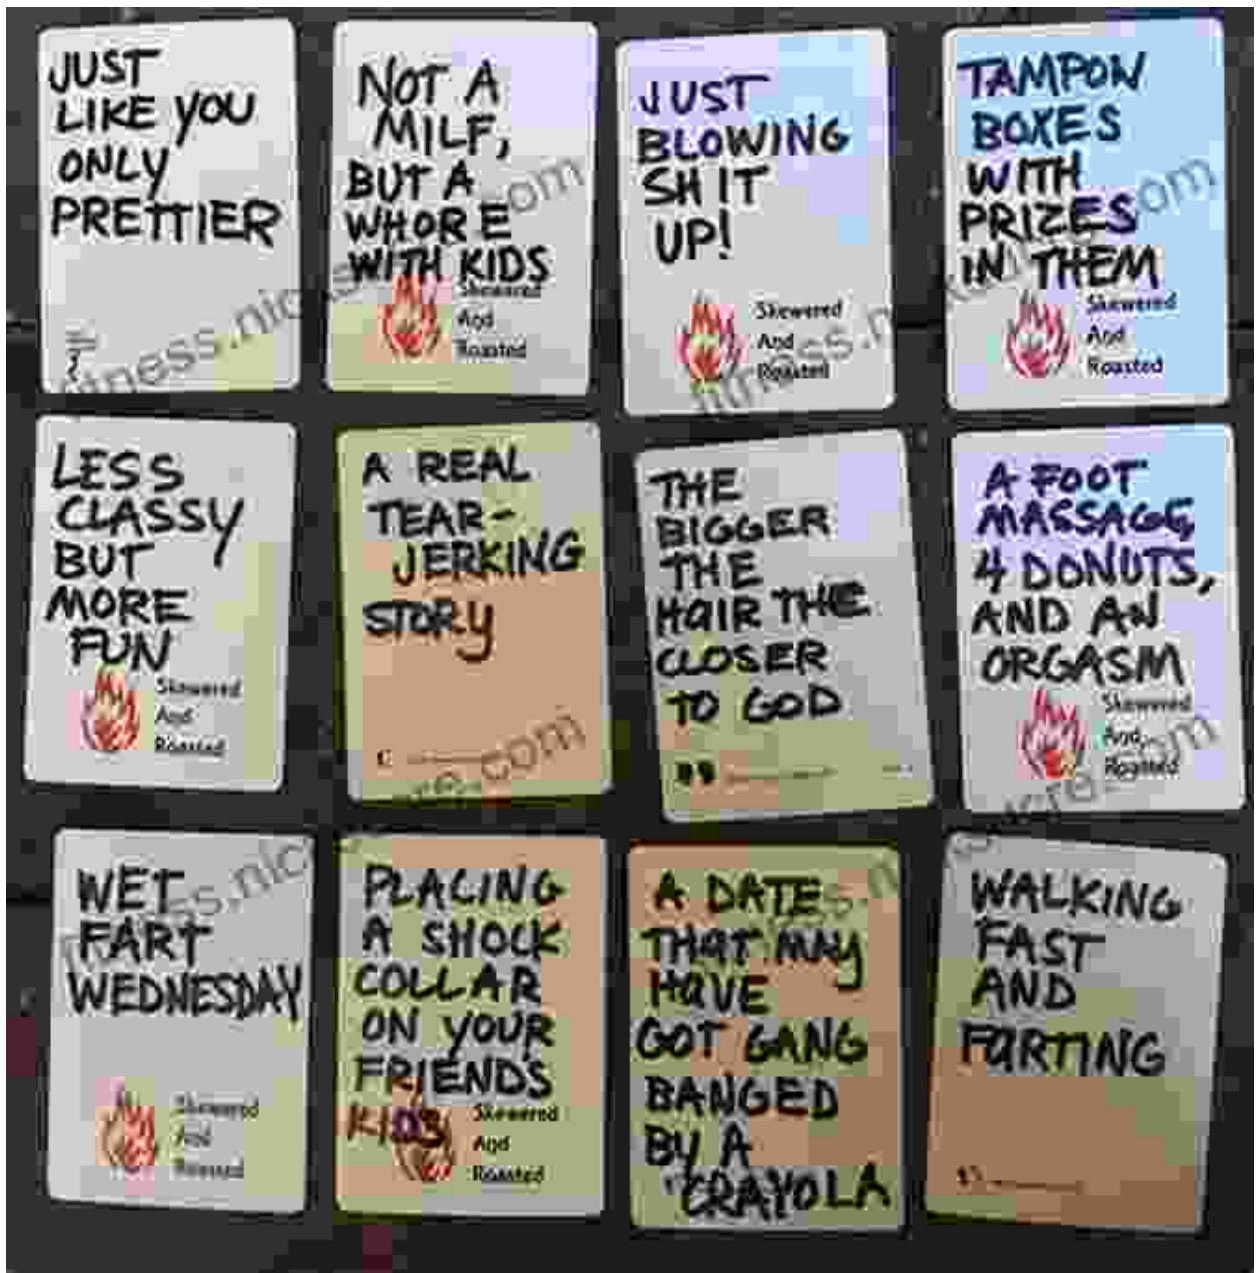 JUST
LIKE YOU
ONLY
PRETTIER
NOT A
MILF,
BUT A
WHORE
WITH KIDS
Skewered
And
Roasted
JUST
BLOWING
SHIT
UP!
Skewered
And
Roasted
TAMPON
BOXES
WITH
PRIZES
IN THEM
Skewered
And
Roasted
LESS
CLASSY
BUT
MORE
FUN
Skewered
And
Roasted
A REAL
TEAR-
JERKING
STORY
THE
BIGGER
THE
HAIR THE
CLOSER
TO GOD
A FOOT
MASSAGE,
4 DONUTS,
AND AN
ORGASM
Skewered
And
Roasted
WET
FART
WEDNESDAY
Skewered
And
Roasted
PLACING
A SHOCK
COLLAR
ON YOUR
FRIENDS
KIDS
Skewered
And
Roasted
A DATE
THAT MAY
HAVE
GOT GANG
BANGED
BY A
CRAYOLA
WALKING
FAST
AND
FARTING